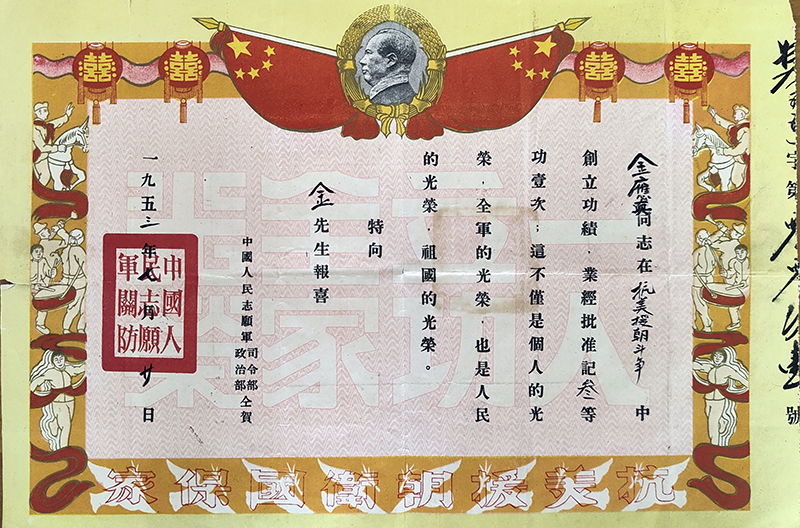 囍 囍 囍 囍
字第 號
金 同志在抗美援朝斗爭中
創立功績,業經批准記叁等
功壹次;這不僅是個人的光
榮,全軍的光榮,也是人民
的光榮,祖國的光榮。
特向
金先生報喜
中國人民志願軍
司令部
政治部
仝賀
一九五三年七月廿日
中國人
民志願
軍關防
一人
立功
全家
光榮
抗美援朝衛國保家